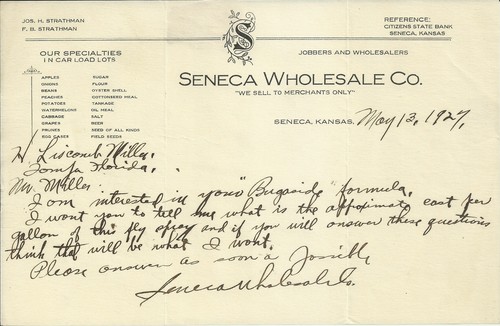 JOS. H. STRATHMAN
F. B. STRATHMAN
S
REFERENCE:
CITIZENS STATE BANK
SENECA, KANSAS
OUR SPECIALTIES
IN CAR LOAD LOTS
JOBBERS AND WHOLESALERS
SENECA WHOLESALE CO.
"WE SELL TO MERCHANTS ONLY"
APPLES SUGAR
ONIONS FLOUR
BEANS OYSTER SHELL
PEACHES COTTONSEED MEAL
POTATOES TANKAGE
WATERMELONS OIL MEAL
CABBAGE SALT
GRAPES BEER
PRUNES SEED OF ALL KINDS
EGG CASES FIELD SEEDS
SENECA, KANSAS, May 13, 1927,
H. Liscomb Miller,
Tampa Florida,
Mr. Miller.
I am interested in your "Bugaside" formula,
I want you to tell me what is the approximate cost per
gallon of this fly spray and if you will answer these questions
think that will be what I want.
Please answer as soon a Possible
Seneca Wholesale Co.